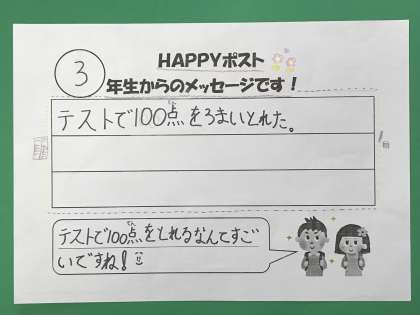 HAPPYポスト
3
年生からのメッセージです！
テストで100点を3まいとれた。
テストで100点をとれるなんてすご
いですね！